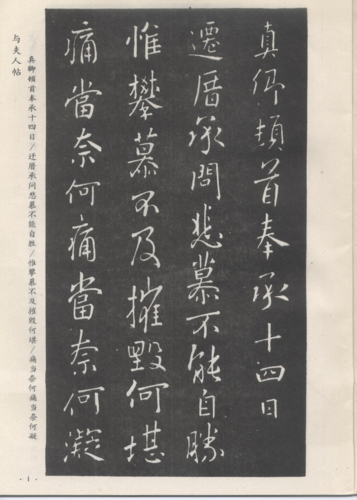 真卿頓首奉承十四日
遷厝承問悲慕不能自勝
惟攀慕不及摧毀何堪
痛當奈何痛當奈何凝
与夫人帖
真卿顿首奉承十四日/迁厝承问悲慕不能自胜/惟攀慕不及摧毁何堪/痛当奈何痛当奈何凝
·1·